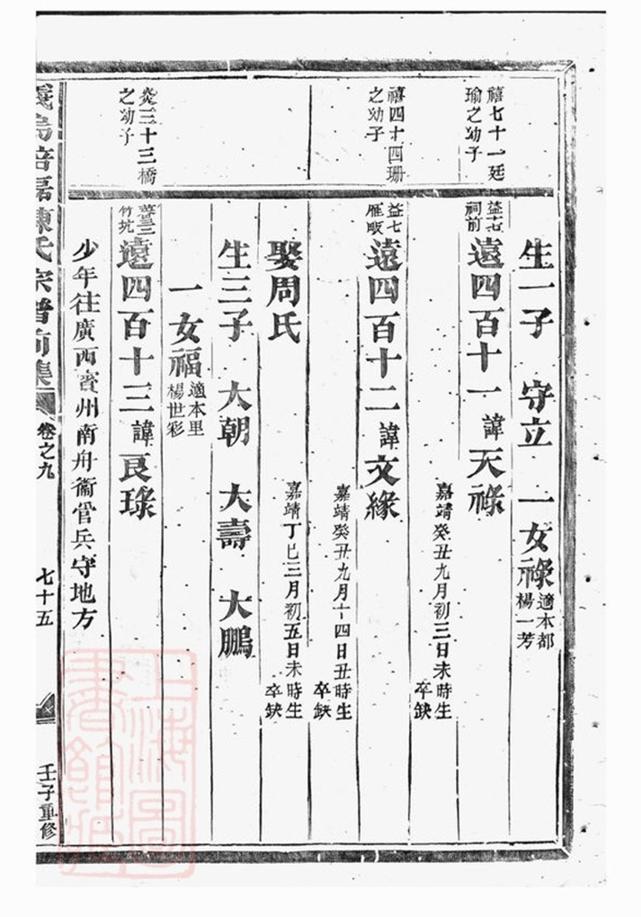 禧七十一廷
瑜之幼子
禧四十四珊
之幼子
炎三十三橋
之幼子
生一子 守立 一女祿 適本都
楊一芳
祠前
遠四百十一 諱天祿
嘉靖癸丑九月初三日未時生
卒缺
益七
雁畈
遠四百十二 諱文緣
嘉靖癸丑九月十四日丑時生
卒缺
娶周氏 嘉靖丁巳三月初五日未時生
卒缺
生三子 大朝 大壽 大鵬
一女福 適本里
楊世彩
竹坑
遠四百十三 諱良琭
少年往廣西賓州南舟衛管兵守地方
義烏倍磊陳氏宗譜前集 卷之九 七十五 壬子重修
上海圖書館藏